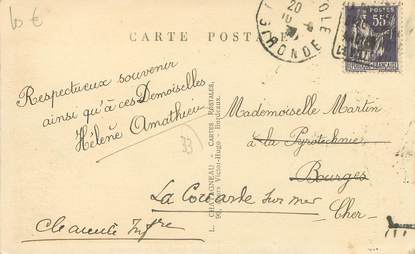 10 €
CARTE POSTALE
20
GIRONDE
POSTES
55c
Respectueux souvenir
ainsi qu'à ces Demoiselles
Hélène Amathieu
33
L. CHATAGNEAU - CARTES POSTALES,
Victor-Hugo - Bordeaux.
Mademoiselle Martin
à la Pyrotechnie
Bourges
La Couarde sur mer
Cher
Charente Infre